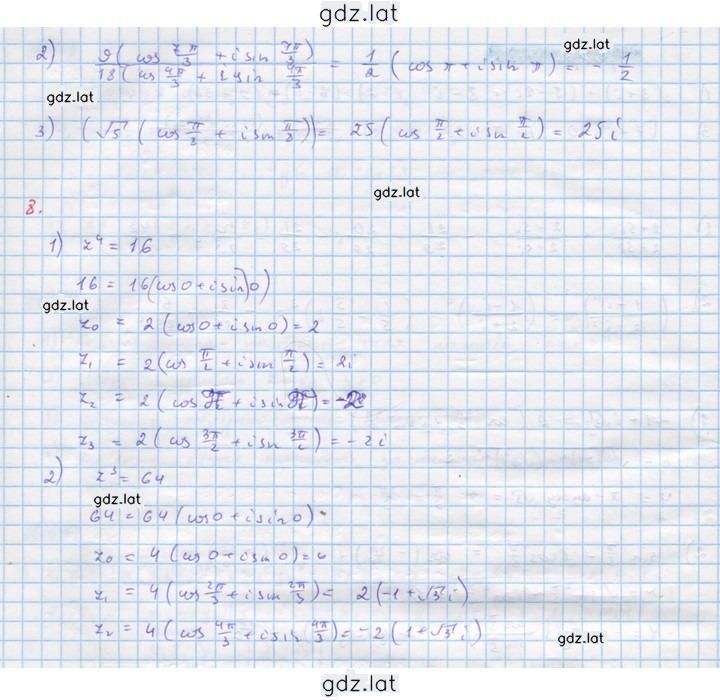 gdz.lat
gdz.lat
2) 9(cos 7π/3 + i sin 7π/3) / 18(cos 4π/3 + i sin 4π/3) = 1/2 (cos π + i sin π) = - 1/2
gdz.lat
3) (√5 (cos π/8 + i sin π/8)) = 25(cos π/2 + i sin π/2) = 25i
gdz.lat
8.
1) z⁴ = 16
16 = 16(cos 0 + i sin 0)
gdz.lat
z₀ = 2 (cos 0 + i sin 0) = 2
z₁ = 2(cos π/2 + i sin π/2) = 2i
z₂ = 2 (cos π + i sin π) = -2
z₃ = 2 (cos 3π/2 + i sin 3π/2) = - 2i
2) z³ = 64
gdz.lat
64 = 64 (cos 0 + i sin 0)
z₀ = 4 (cos 0 + i sin 0) = 4
z₁ = 4 (cos 2π/3 + i sin 2π/3) = 2(-1 + √3 i)
z₂ = 4 (cos 4π/3 + i sin 4π/3) = -2 (1 + √3 i)
gdz.lat
gdz.lat